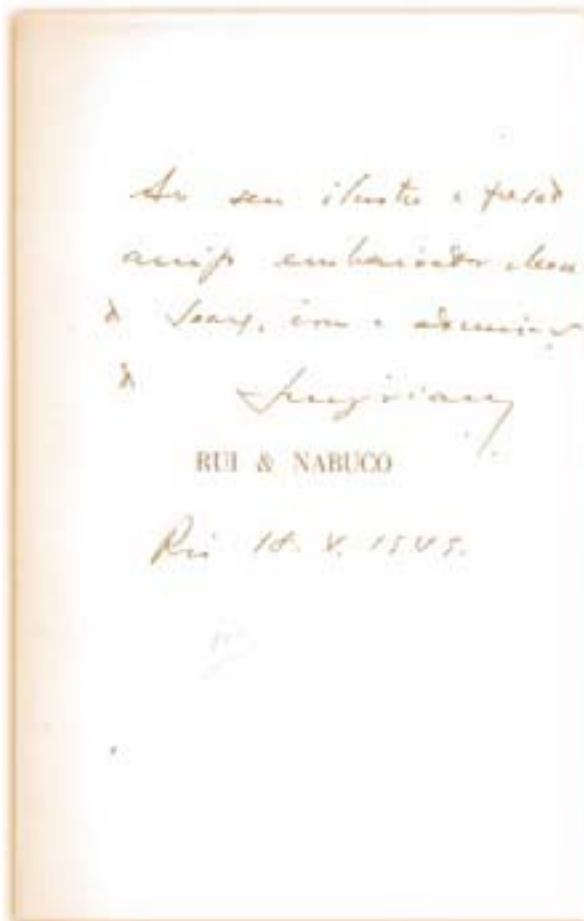 Ao seu ilustre e prezad
amigo embaixador
de Souz, com a admiraç
de
RUI & NABUCO
Rio 18. V. 1949.